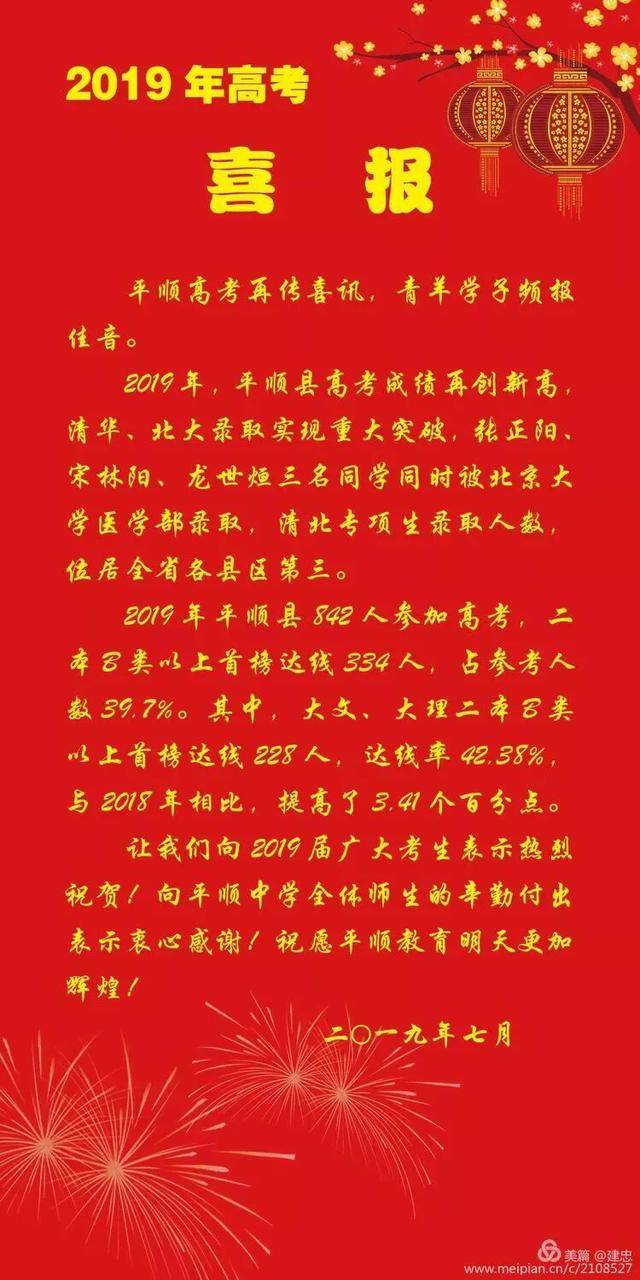 2019 年高考
喜 报
平顺高考再传喜讯，青羊学子频报
佳音。
2019年，平顺县高考成绩再创新高，
清华、北大录取实现重大突破，张正阳、
宋林阳、龙世烜三名同学同时被北京大
学医学部录取，清北专项生录取人数，
位居全省各县区第三。
2019年平顺县842人参加高考，二
本B类以上首榜达线334人，占参考人
数39.7%。其中，大文、大理二本B类
以上首榜达线228人，达线率42.38%，
与2018年相比，提高了3.41个百分点。
让我们向2019届广大考生表示热烈
祝贺！向平顺中学全体师生的辛勤付出
表示衷心感谢！祝愿平顺教育明天更加
辉煌！
二〇一九年七月
美篇 @建忠
www.meipian.cn/c/2108527